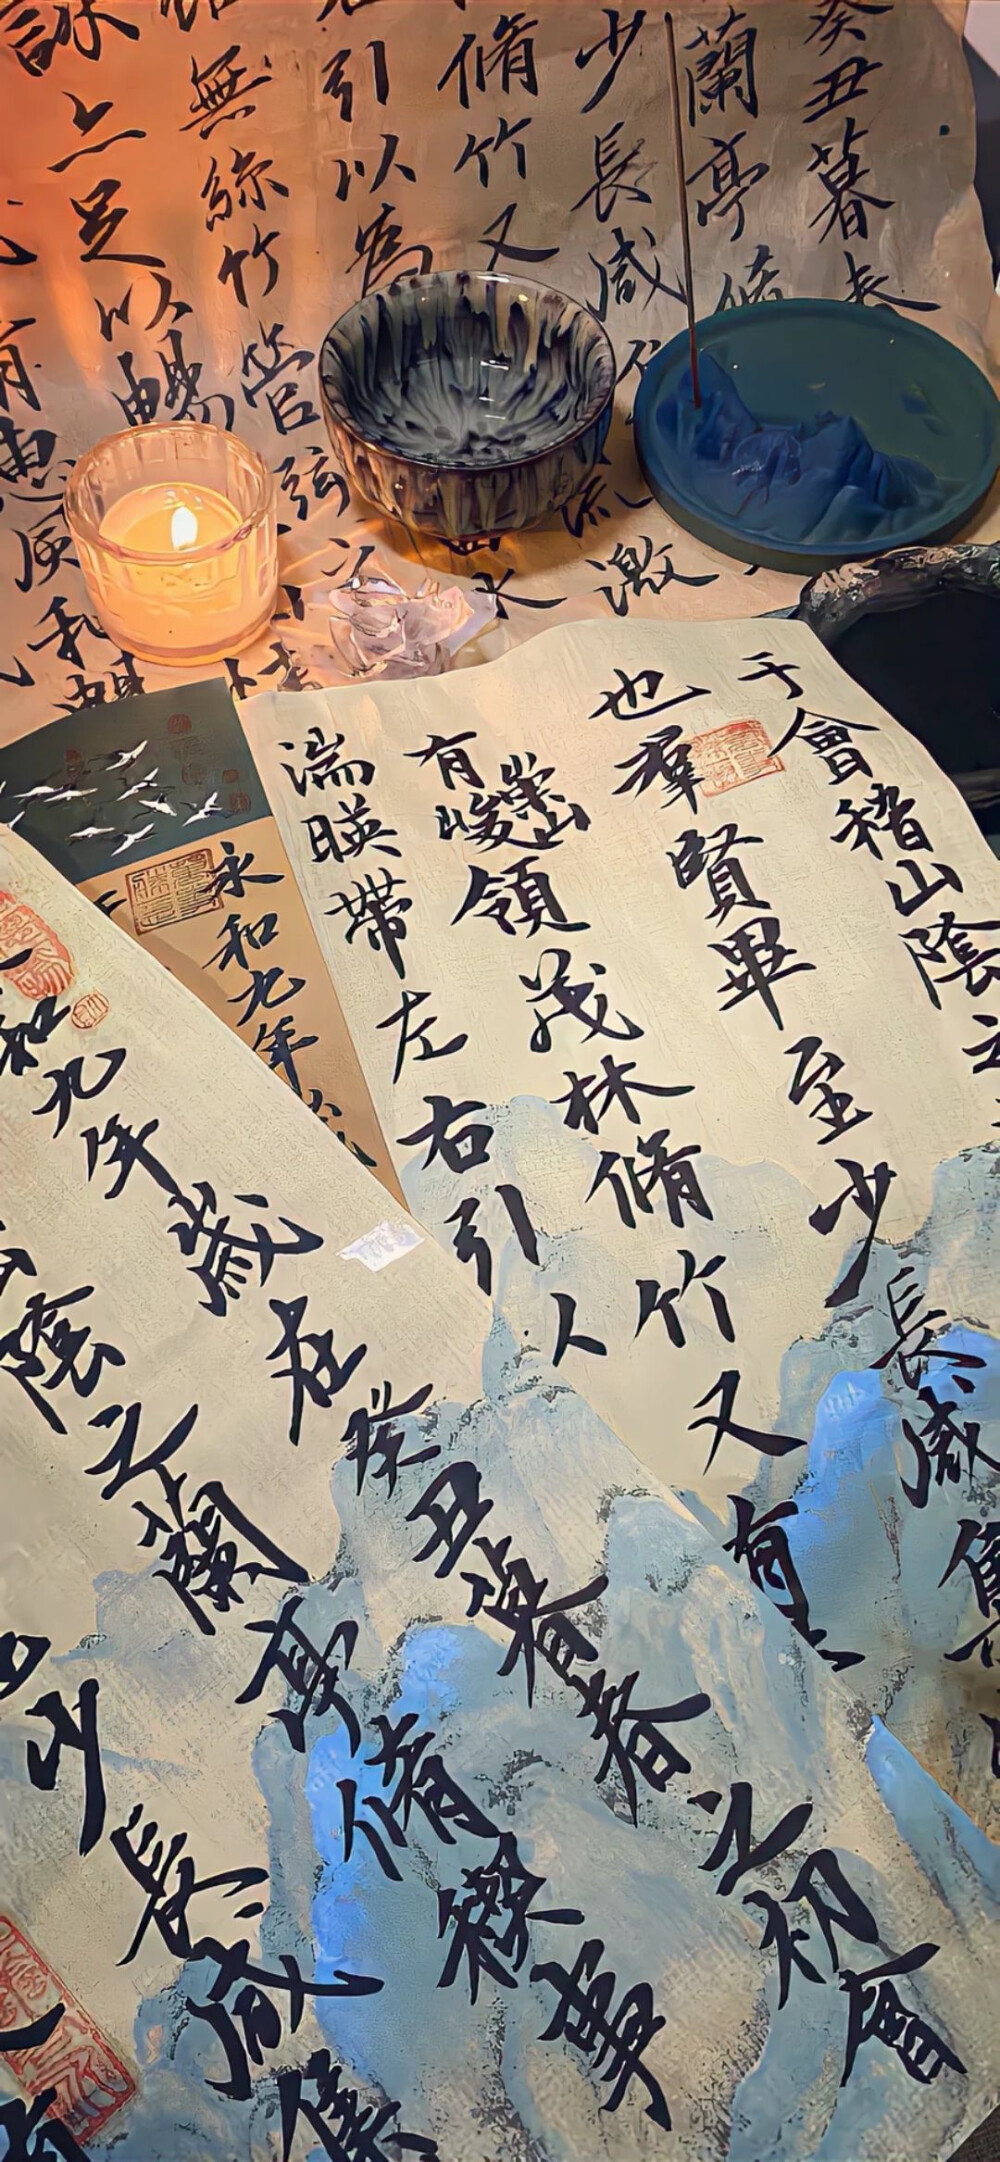 癸丑暮春
蘭亭脩
少長咸
激
脩竹又
引以為
無絲竹管弦之
詠亦足以暢
惠風和暢
于會稽山陰之
也羣賢畢至少長咸集
有崇山峻領茂林脩竹又有
湍暎帶左右引人
永和九年歲
和九年歲在癸丑暮春之初會
陰之蘭亭脩禊事
少長咸集